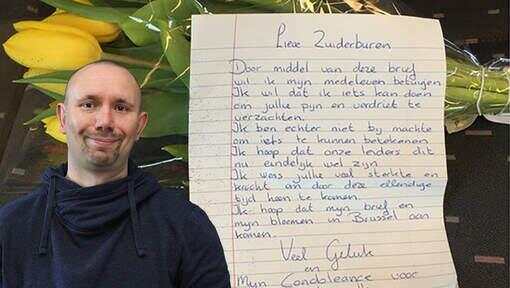 Lieve Zuiderburen
Door middel van deze brief
wil ik mijn medeleven betuigen
Ik wil dat ik iets kan doen
om jullie pijn en verdriet te
verzachten.
Ik ben echter niet bij machte
om iets te kunnen betekenen
Ik hoop dat onze leiders dit
nu eindelijk wel zijn
Ik wens jullie veel sterkte en
kracht om door deze ellendige
tijd heen te komen.
Ik hoop dat mijn brief en
mijn bloemen in Brussel aan
komen.
Veel Geluk
en
Mijn Condoleance voor